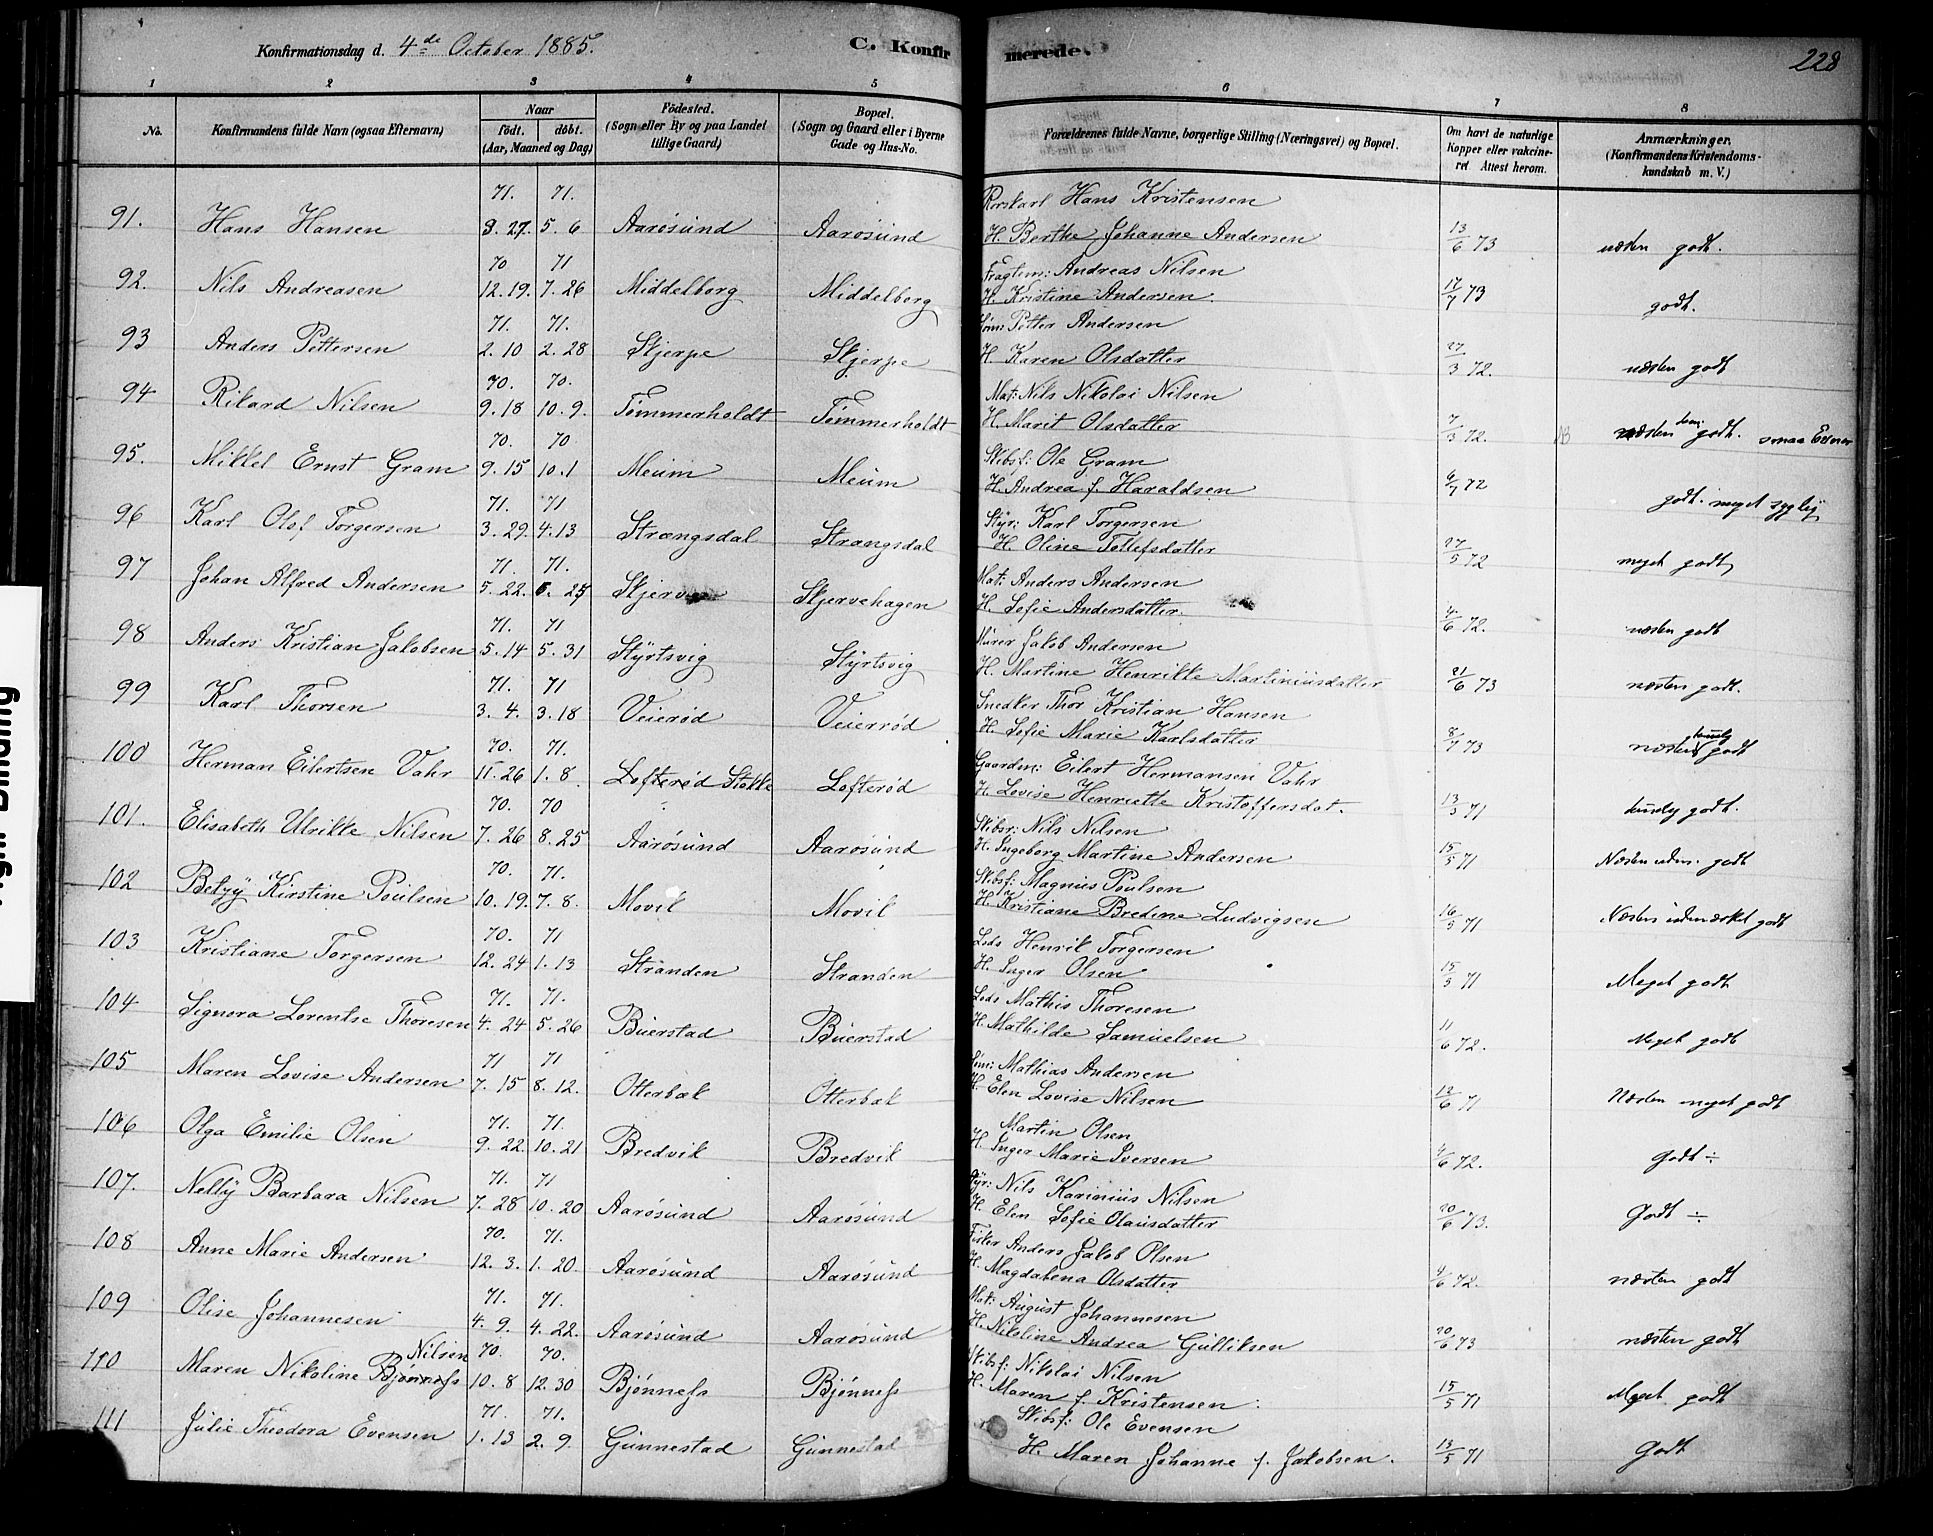 Konfirmationsdag d. 4de October 1885.
C. Konfirmerede.
228
1 2 3 4 5 6 7 8
No.
Konfirmandens fulde Navn (ogsaa Efternavn)
Naar
født. døbt.
(Aar, Maaned og Dag)
Fødested.
(Sogn eller By og paa Landet
tillige Gaard)
Bopæl.
(Sogn og Gaard eller i Byerne
Gade og Hus-No.
Forældrenes fulde Navne, borgerlige Stilling (Næringsvei) og Bopæl.
Om havt de naturlige
Kopper eller vakcine-
ret Attest herom.
Anmærkninger.
(Konfirmandens Kristendoms-
kundskab m. V.)
71. 71. Hans Kristensen
91. Hans Hansen 3. 27. 5. 6 Aarøsund Aarøsund H. Berthe Johanne Andersen 13/6 73 næsten godt.
70 71 Fragtem: Andreas Nilsen
92. Nils Andreasen 12. 19. 7. 26 Middelborg Middelborg H. Kristine Andersen 17/7 73 godt.
71. 71. Petter Andersen
93 Anders Pettersen 2. 10 2. 28 Skjerpe Skjerpe H. Karen Olsdatter 27/3 72. næsten godt
70. 70. Mat: Nils Nikolai Nilsen
94 Rikard Nilsen 9. 18 10. 9. Tømmerholdt Tømmerholdt H. Marit Olsdatter 7/3 72. NB næsten godt. smaa Evner
70. 70 Skibsf: Ole Gram
95. Mikkel Ernst Gram 9. 15 10. 1 Meum Meum H. Andrea f. Haraldsen 6/7 72 godt. meget sygelig
71. 71 Styr: Karl Torgersen
96 Karl Olaf Torgersen 3. 29. 4. 13 Strængsdal Strængsdal H. Oline Tollefsdatter 27/5 72 meget godt
71. 71. Mat: Anders Andersen
97 Johan Alfred Andersen 5. 22. 6. 25 Skjerve Skjervehagen H. Sofie Andersdatter. 4/6 72. næsten godt
71. 71 Murer Jakob Andersen
98 Anders Kristian Jakobsen 5. 14 5. 31 Styrtsvig Styrtsvig H. Martine Henrikke Martiniusdatter 21/6 73 næsten godt.
71. 71 Snedker Thor Kristian Hansen
99 Karl Thorsen 3. 4. 3. 18 Veierød Veierrød H. Sofie Marie Karlsdatter 8/7 73 næsten godt
70. 71. Gaardm: Eilert Hermansen Vahr
100 Herman Eilertsen Vahr 11. 26 1. 8 Lofterød Stokke Lofterød H. Lovise Henriette Kristoffersdat. 13/3 71 godt.
70. 70 Skibsr: Nils Nilsen
101. Elisabeth Ulrikke Nilsen 7. 26 8. 25 Aarøsund Aarøsund H. Ingeborg Martine Andersen 15/5 71 Næsten udm. godt
70. 71. Skibsf: Magnus Poulsen
102 Betzy Kirstine Poulsen 10. 19. 7. 8. Movil Movil H. Kristiane Bredine Ludvigsen 16/5 71 Næsten udmærket godt
70. 71 Lods Henrik Torgersen
103 Kristiane Torgersen 12. 24 1. 13 Stranden Stranden H. Inger Olsen 15/3 71 Meget godt
71. 71. Lods Mathis Thoresen
104 Signora Lorentse Thoresen 4. 24 5. 26 Buerstad Buerstad H. Mathilde Samuelsen 11/6 72. Meget godt
71 71 Mathias Andersen
105 Maren Lovise Andersen 7. 15 8. 12. Otterbæk Otterbæk H. Elen Lovise Nilsen 12/6 71 Næsten meget godt
71. 71. Martin Olsen
106 Olga Emilie Olsen 9. 22. 10. 21 Bredvik Bredvik H. Inger Marie Iversen 4/6 72. Godt ÷
71. 71 Styr: Nils Karinius Nilsen
107. Nelly Barbara Nilsen 7. 28 10. 20 Aarøsund Aarøsund H. Elen Sofie Olausdatter 20/6 73. Godt ÷
70. 71. Fisker Anders Jakob Olsen
108 Anne Marie Andersen 12. 3. 1. 20. Aarøsund Aarøsund H. Magdalena Olsdatter 4/6 72. næsten godt
71. 71. Mat: August Johannesen
109 Olise Johannesen 4. 9. 4. 22. Aarøsund Aarøsund H. Nikoline Andrea Gulliksen 20/6 73 næsten godt
Nilsen 70. 70. Skibsf: Nikolai Nilsen
110 Maren Nikoline Bjønness 10. 8 12. 30 Bjønness Bjønness H. Maren f. Kristensen. 15/5 71 Meget godt
71. 71. Skibsf: Ole Evensen
111 Julie Theodora Evensen 1. 13 2. 9. Gunnestad Gunnestad H. Maren Johanne f. Jakobsen. 13/5 71 Godt